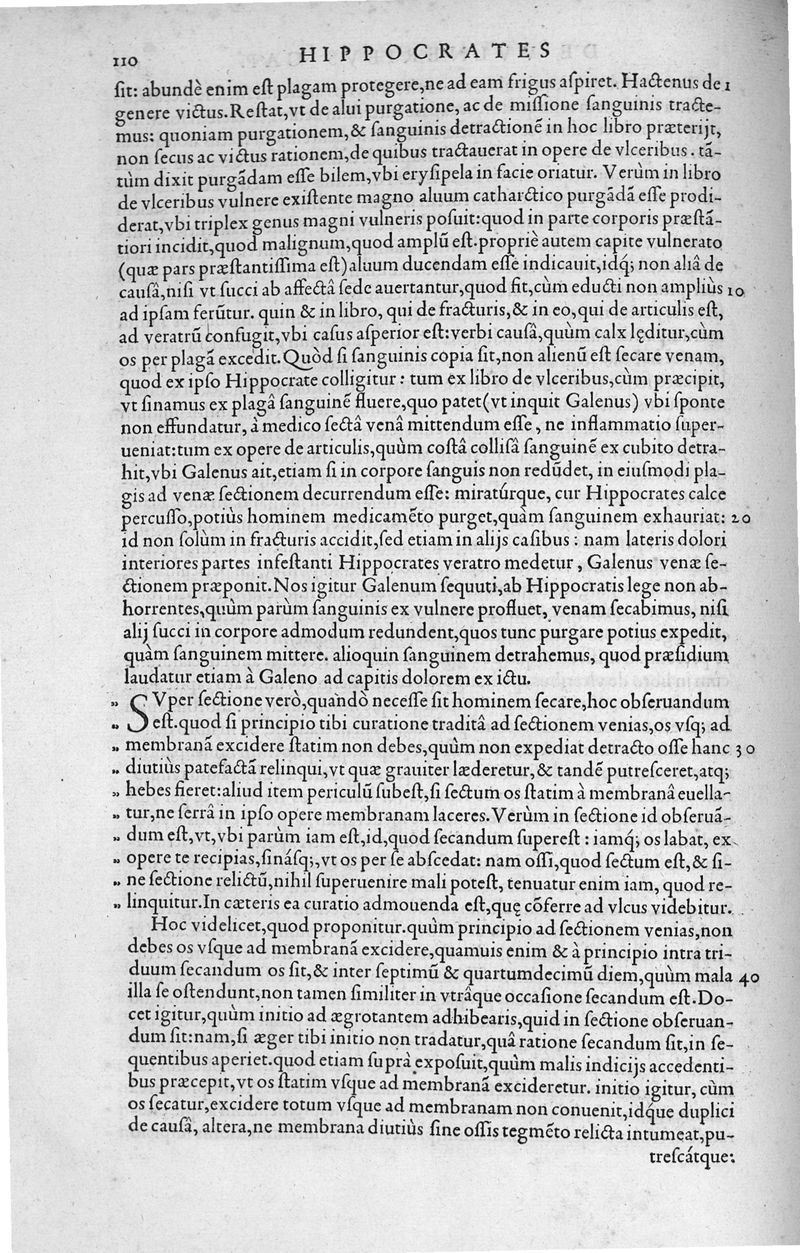 110
HIPPOCRATES
ſit: abundè enim eſt plagam protegere,ne ad eam frigus aſpiret. Hactenus de 1
genere victus.Reſtat,vt de alui purgatione, ac de miſſione ſanguinis tracte-
mus: quoniam purgationem,& ſanguinis detractionẽ in hoc libro præterijt,
non ſecus ac victus rationem,de quibus tractauerat in opere de vlceribus. tã-
tùm dixit purgãdam eſſe bilem,vbi eryſipela in facie oriatur. Verùm in libro
de vlceribus vulnere exiſtente magno aluum cathartico purgãdã eſſe prodi-
derat,vbi triplex genus magni vulneris poſuit:quod in parte corporis præſtã-
tiori incidit,quod malignum,quod amplũ eſt.propriè autem capite vulnerato
(quæ pars præſtantiſſima eſt)aluum ducendam eſſe indicauit,idq́; non aliâ de
cauſâ,niſi vt ſucci ab affectâ ſede auertantur,quod fit,cùm educti non ampliùs 10
ad ipſam ferũtur. quin & in libro, qui de fracturis,& in eo,qui de articulis eſt,
ad veratrũ confugit,vbi caſus aſperior eſt:verbi cauſâ,quùm calx lęditur,cùm
os per plagã excedit.Quòd ſi ſanguinis copia ſit,non alienũ eſt ſecare venam,
quod ex ipſo Hippocrate colligitur: tum ex libro de vlceribus,cùm præcipit,
vt ſinamus ex plagâ ſanguinẽ fluere,quo patet(vt inquit Galenus) vbi ſponte
non effundatur, à medico ſectâ venâ mittendum eſſe, ne inflammatio ſuper-
ueniat:tum ex opere de articulis,quùm coſtâ colliſâ ſanguinẽ ex cubito detra-
hit,vbi Galenus ait,etiam ſi in corpore ſanguis non redũdet, in eiuſmodi pla-
gis ad venæ ſectionem decurrendum eſſe: miratúrque, cur Hippocrates calce
percuſſo,potiùs hominem medicamẽto purget,quàm ſanguinem exhauriat: 20
id non ſolùm in fracturis accidit,ſed etiam in alijs caſibus: nam lateris dolori
interiores partes infeſtanti Hippocrates veratro medetur, Galenus venæ ſe-
ctionem præponit.Nos igitur Galenum ſequuti,ab Hippocratis lege non ab-
horrentes,quùm parùm ſanguinis ex vulnere profluet, venam ſecabimus, niſi
alij ſucci in corpore admodum redundent,quos tunc purgare potius expedit,
quàm ſanguinem mittere. alioquin ſanguinem detrahemus, quod præſidium
laudatur etiam à Galeno ad capitis dolorem ex ictu.
„ SVper ſectione verò,quandò neceſſe ſit hominem ſecare,hoc obſeruandum
„ eſt.quod ſi principio tibi curatione traditâ ad ſectionem venias,os vſq; ad
„ membranã excidere ſtatim non debes,quùm non expediat detracto oſſe hanc 30
„ diutiùs patefactã relinqui,vt quæ grauiter læderetur,& tandẽ putreſceret,atq;
„ hebes fieret:aliud item periculũ ſubeſt,ſi ſectum os ſtatim à membranâ euella-
„ tur,ne ſerrâ in ipſo opere membranam laceres.Verùm in ſectione id obſeruã-
„ dum eſt,vt,vbi parùm iam eſt,id,quod ſecandum ſupereſt: iamq́; os labat, ex
„ opere te recipias,ſináſq;,vt os per ſe abſcedat: nam oſſi,quod ſectum eſt,& ſi-
„ ne ſectione relictũ,nihil ſuperuenire mali poteſt, tenuatur enim iam, quod re-
„ linquitur.In cæteris ea curatio admouenda eſt,quę cõferre ad vlcus videbitur.
Hoc videlicet,quod proponitur.quùm principio ad ſectionem venias,non
debes os vſque ad membranã excidere,quamuis enim & à principio intra tri-
duum ſecandum os ſit,& inter ſeptimũ & quartumdecimũ diem,quùm mala 40
illa ſe oſtendunt,non tamen ſimiliter in vtrâque occaſione ſecandum eſt.Do-
cet igitur,quùm initio ad ægrotantem adhibearis,quid in ſectione obſeruan-
dum ſit:nam,ſi æger tibi initio non tradatur,quâ ratione ſecandum ſit,in ſe-
quentibus aperiet.quod etiam ſuprà expoſuit,quùm malis indicijs accedenti-
bus præcepit,vt os ſtatim vſque ad membranã excideretur. initio igitur, cùm
os ſecatur,excidere totum vſque ad membranam non conuenit,idq́ue duplici
de cauſâ, altera,ne membrana diutiùs ſine oſſis tegmẽto relicta intumeat,pu-
treſcátque: